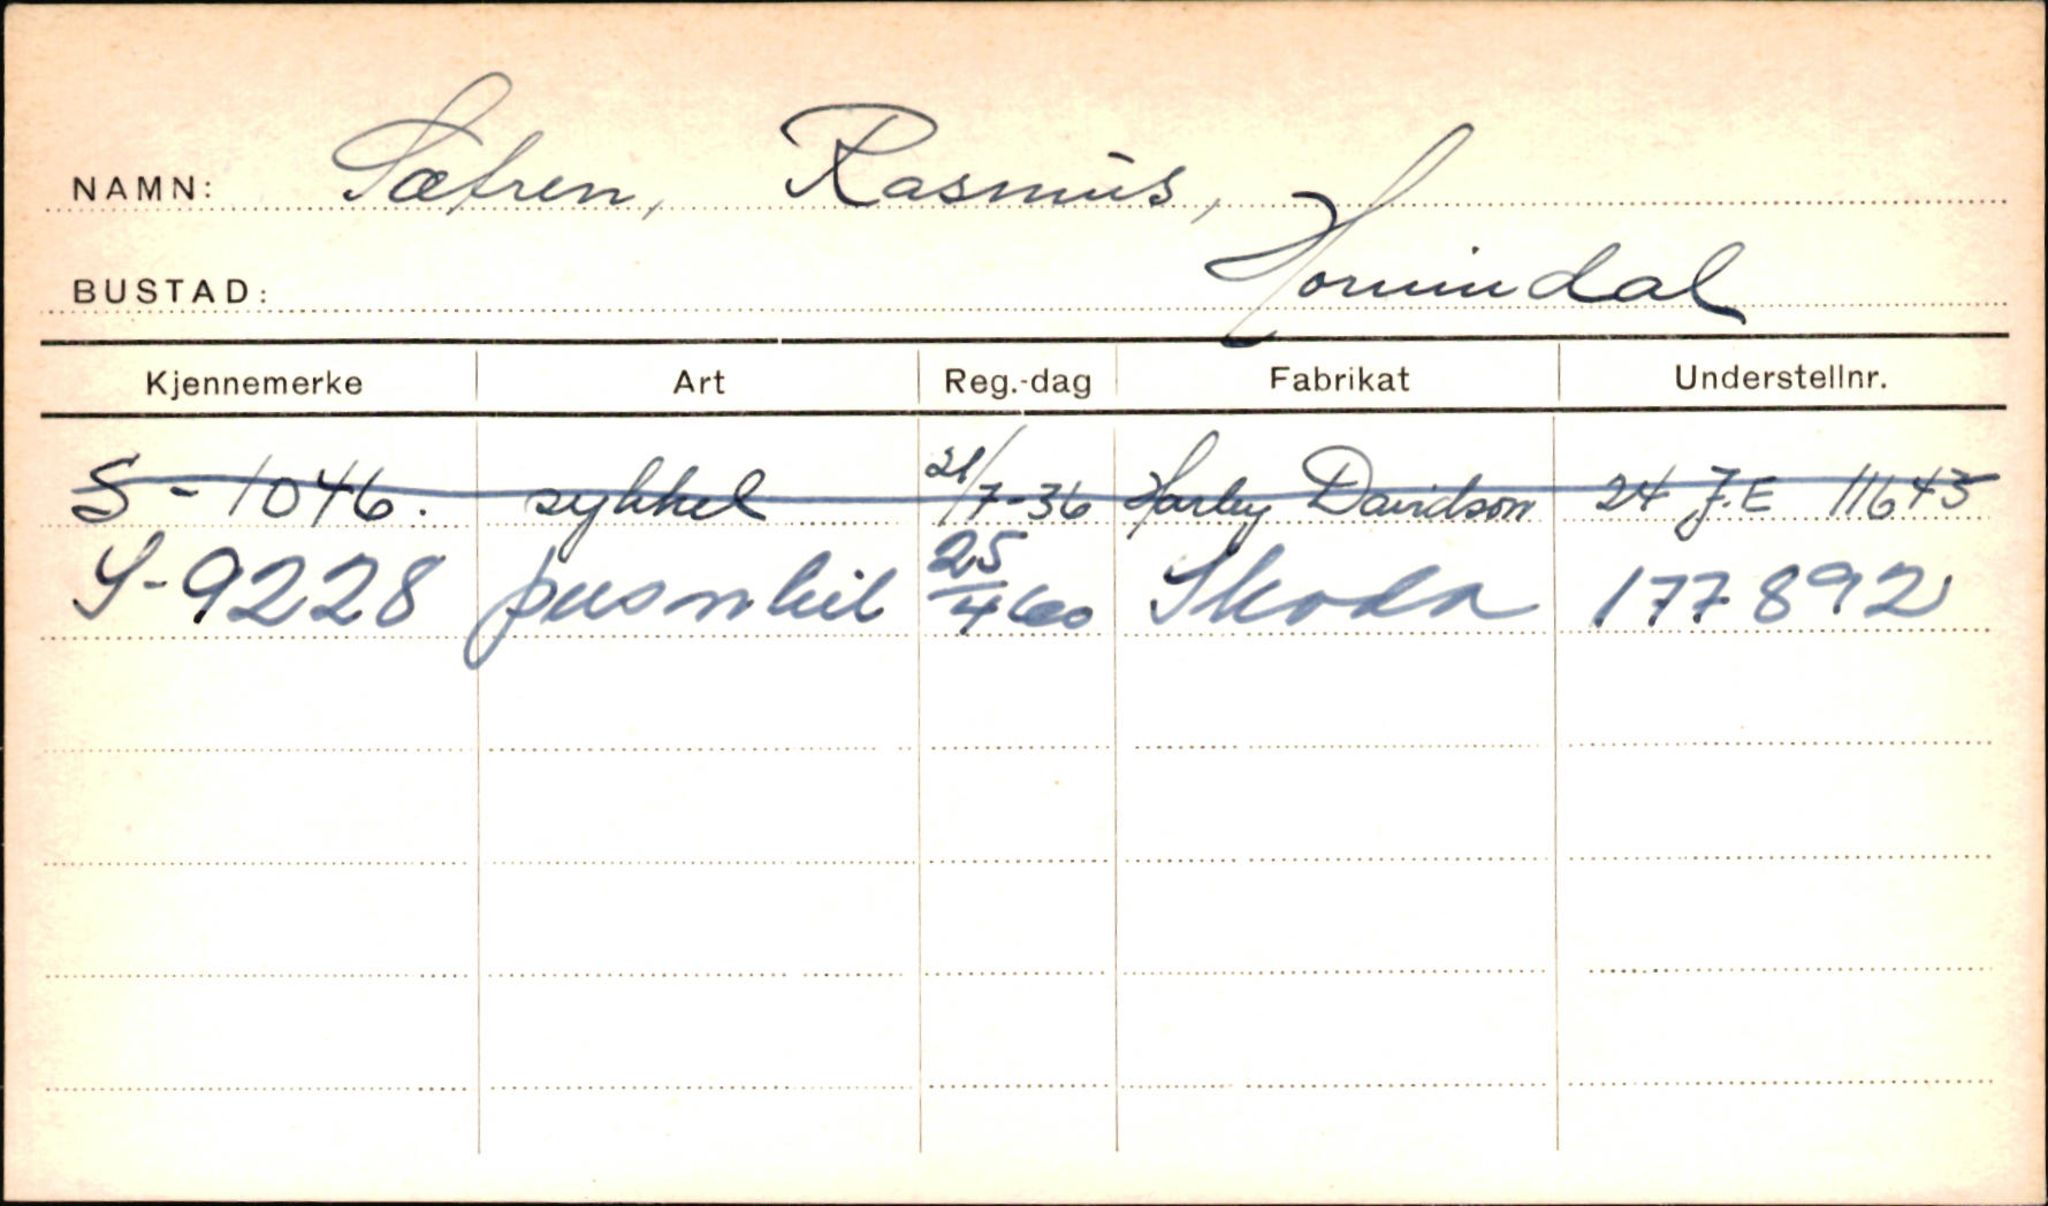 NAMN: Sætren, Rasmus,
BUSTAD: Hornindal
Kjennemerke Art Reg.-dag Fabrikat Understellnr.
S-1046. sykkel 21/7-36 Harley Davidson 24 J.E 11643
S-9228 personbil 25/4 60 Skoda 177892